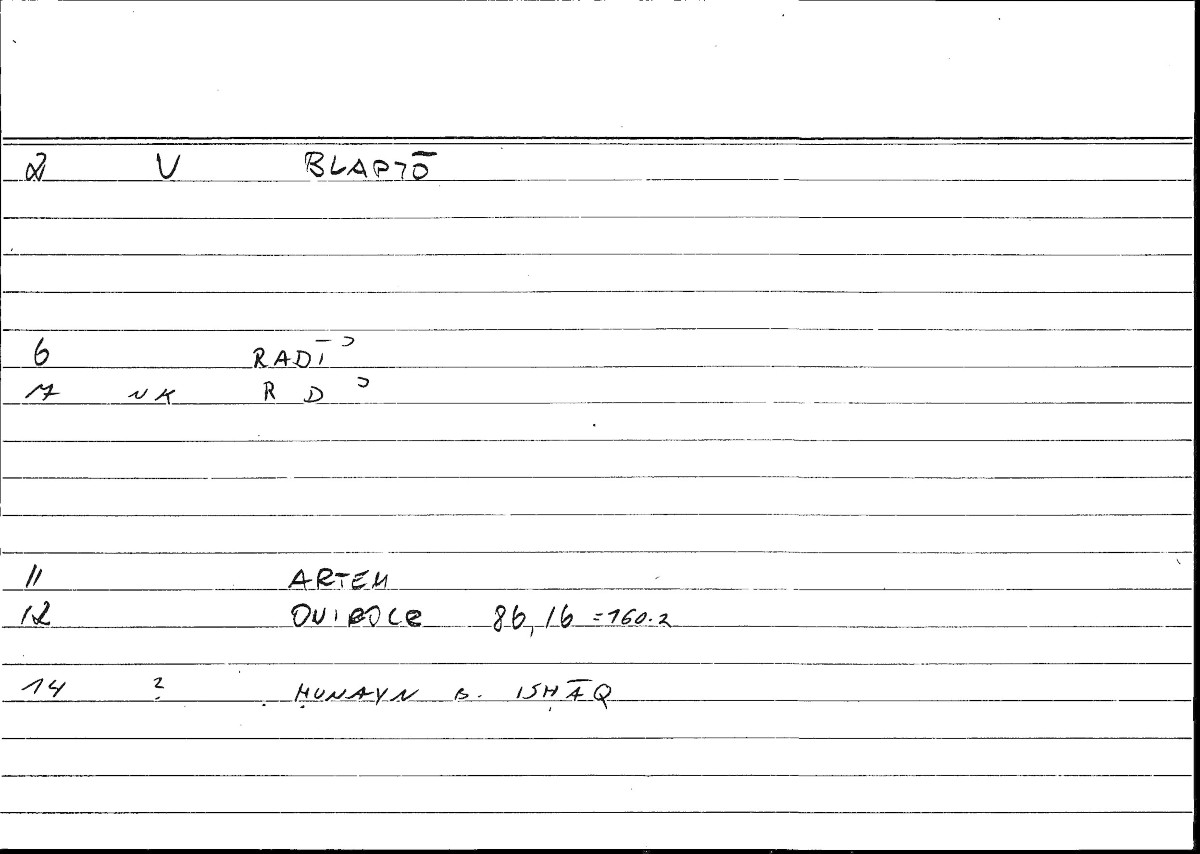 2 V BLAPTŌ
6 RADĪʾ
7 NK R D ʾ
11 ARTEM
12 ONIROCR 86,16 =160.2
14 ? ḤUNAYN B. ISḤĀQ